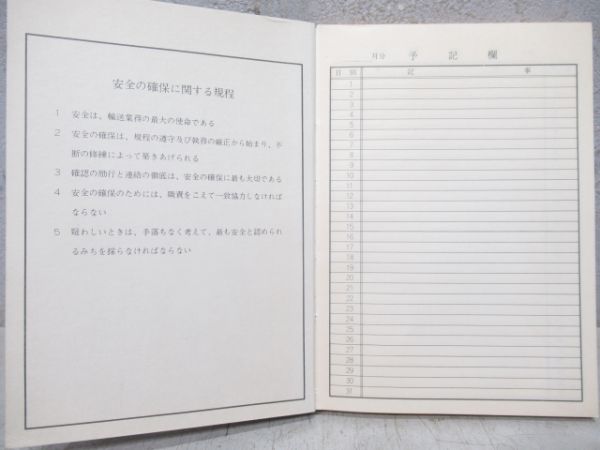 安全の確保に関する規程
1 安全は、輸送業務の最大の使命である
2 安全の確保は、規程の遵守及び執務の厳正から始まり、不
断の修練によって築きあげられる
3 確認の励行と連絡の徹底は、安全の確保に最も大切である
4 安全の確保のためには、職責をこえて一致協力しなければ
ならない
5 疑わしいときは、手落ちなく考えて、最も安全と認められ
るみちを採らなければならない
月分 予記欄
日 記事
1
2
3
4
5
6
7
8
9
10
11
12
13
14
15
16
17
18
19
20
21
22
23
24
25
26
27
28
29
30
31